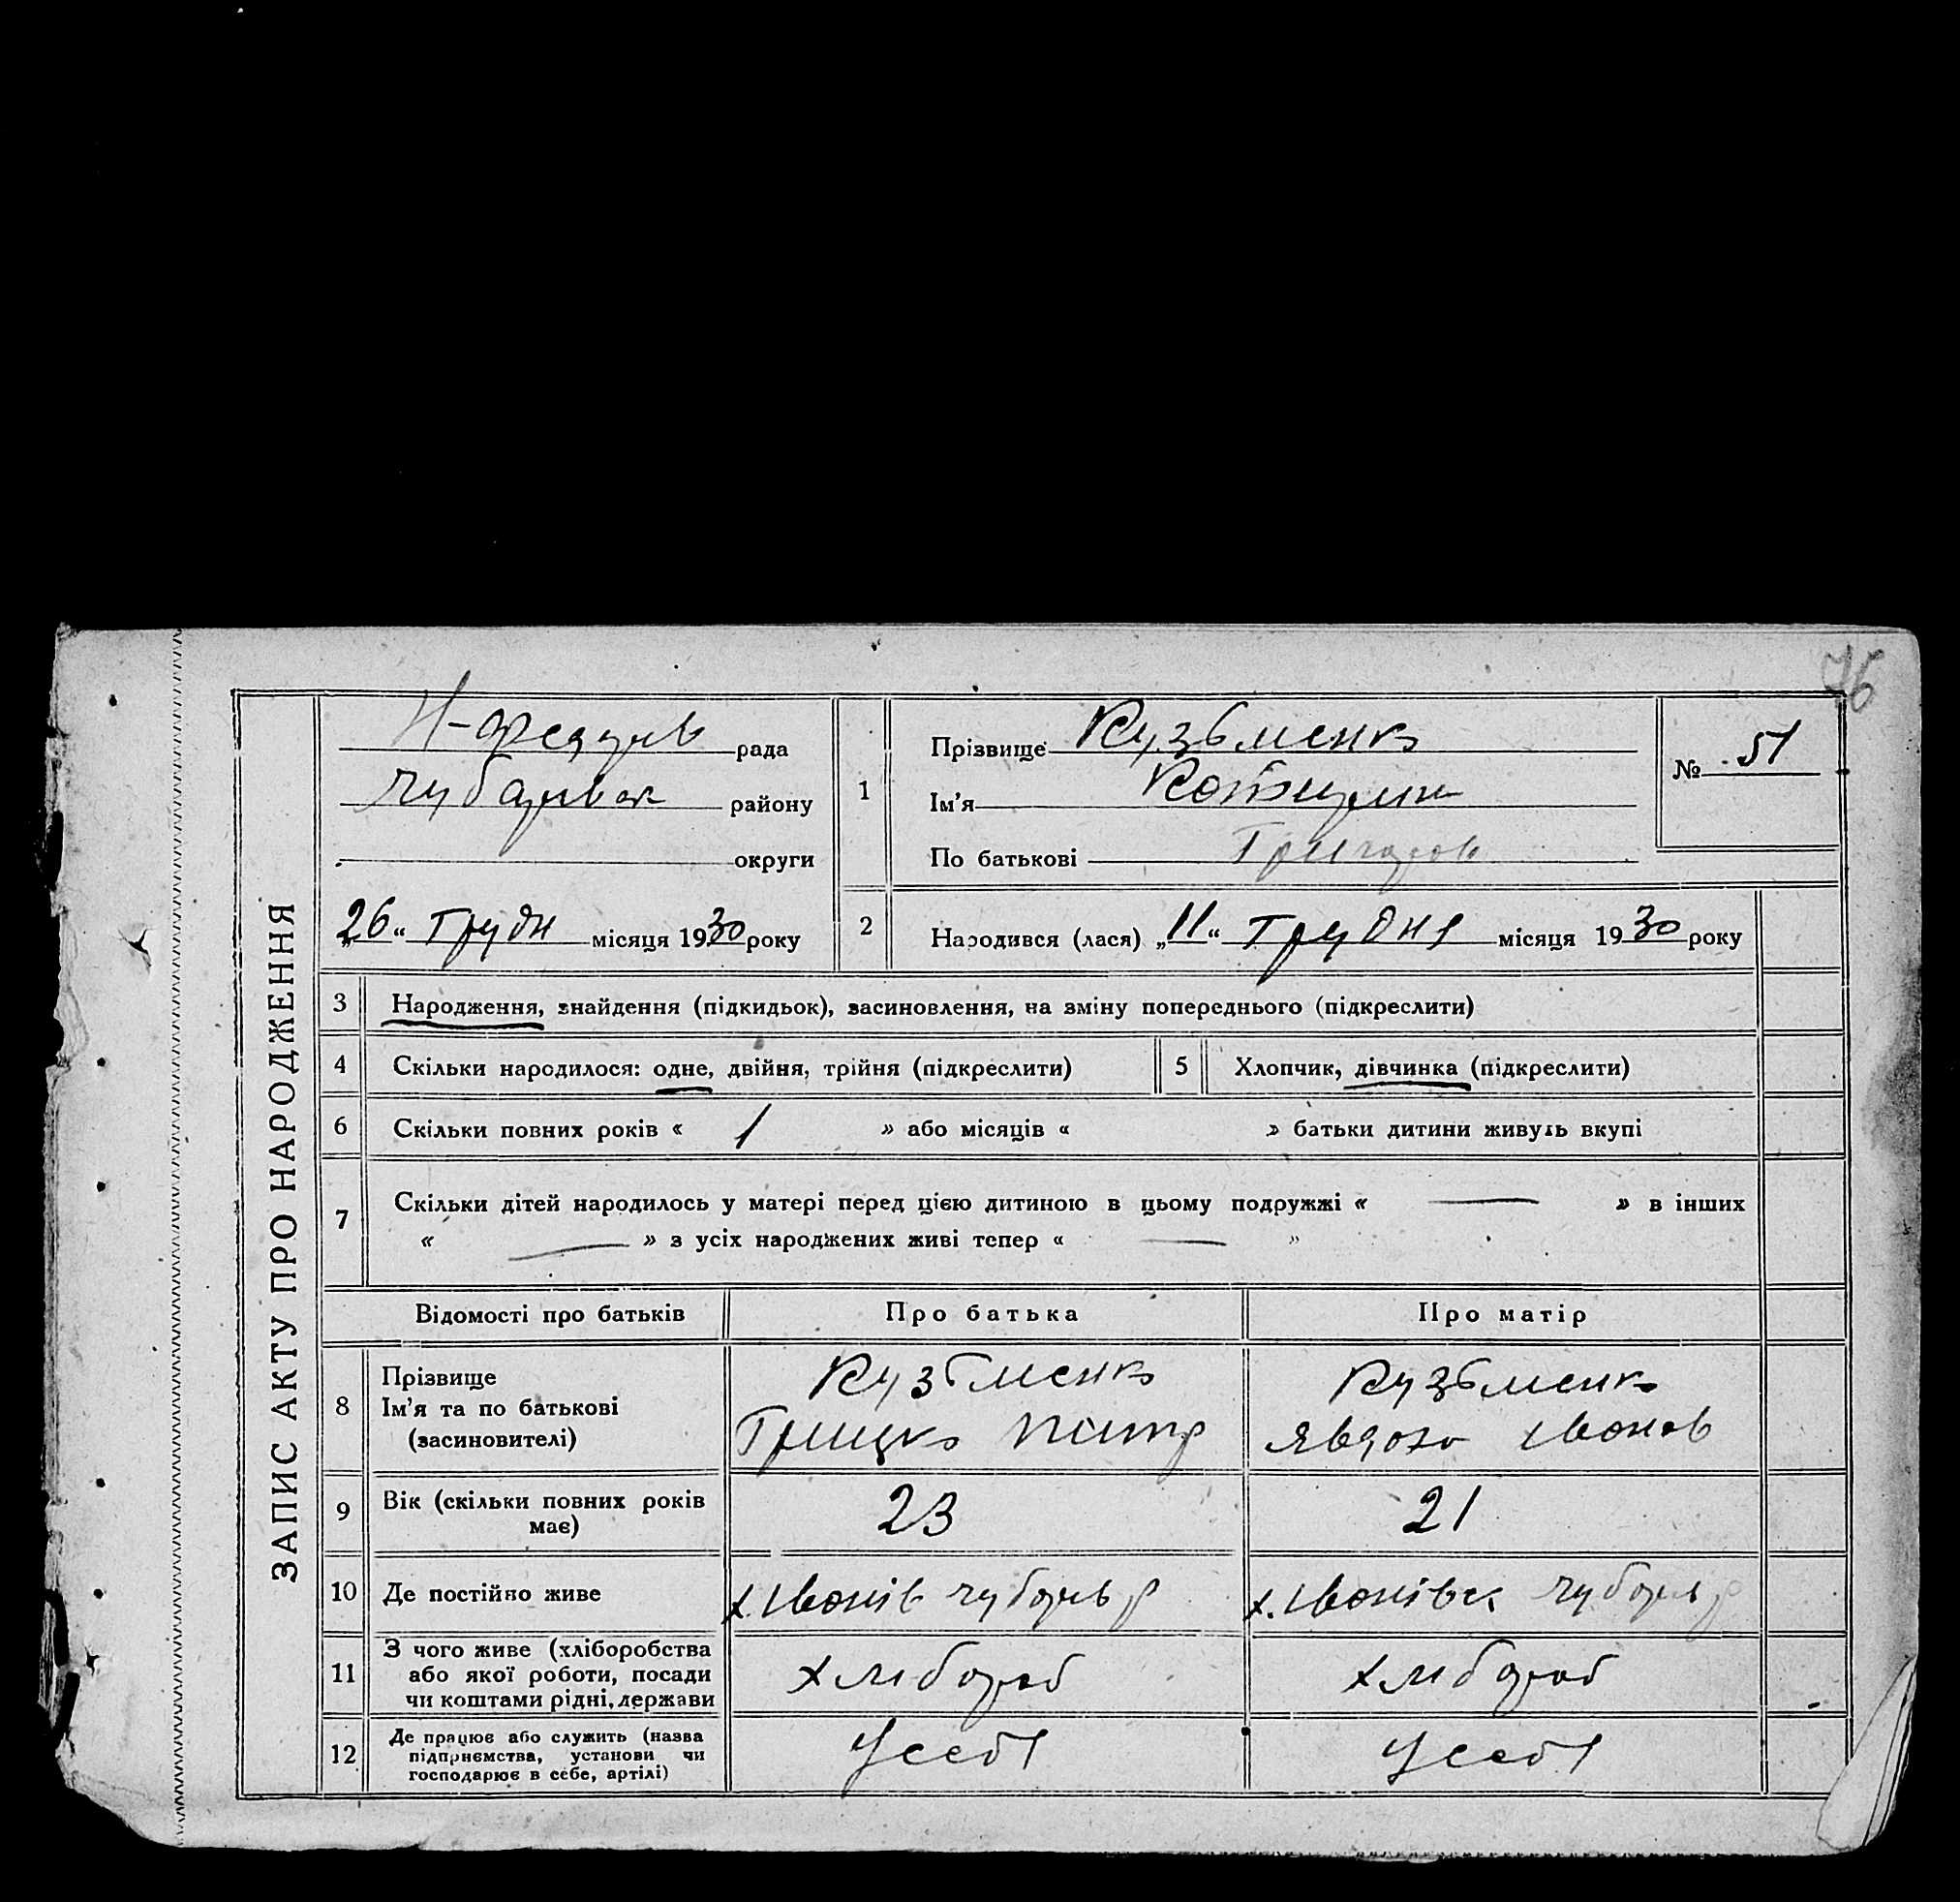 76
ЗАПИС АКТУ ПРО НАРОДЖЕННЯ
Н-Федорів рада
Чубарівск району
округи
„26“ Грудн місяця 1930 року
1
Прізвище Кузьменко
Ім'я Катерина
По батькові Григоров
№ 51
2
Народився (лася) „11“ Грудня місяця 1930 року
3 Народження, знайдення (підкидьок), засиновлення, на зміну попереднього (підкреслити)
4 Скільки народилося: одне, двійня, трійня (підкреслити)
5 Хлопчик, дівчинка (підкреслити)
6 Скільки повних років « 1 » або місяців « » батьки дитини живуть вкупі
7 Скільки дітей народилось у матері перед цією дитиною в цьому подружжі « — » в інших
« — » з усіх народжених живі тепер « — »
Відомості про батьків Про батька Про матір
8 Прізвище Кузьменко Кузьменко
Ім'я та по батькові Грицко Петр Явдоха Іванов
(засиновителі)
9 Вік (скільки повних років має) 23 21
10 Де постійно живе х. Іванів Чубарів р х. Іванівск Чубарів р
11 З чого живе (хліборобства
або якої роботи, посади
чи коштами рідні, держави хлібороб хлібороб
12 Де працює або служить (назва
підприємства, установи чи
господарює в себе, артілі) У себя У себя